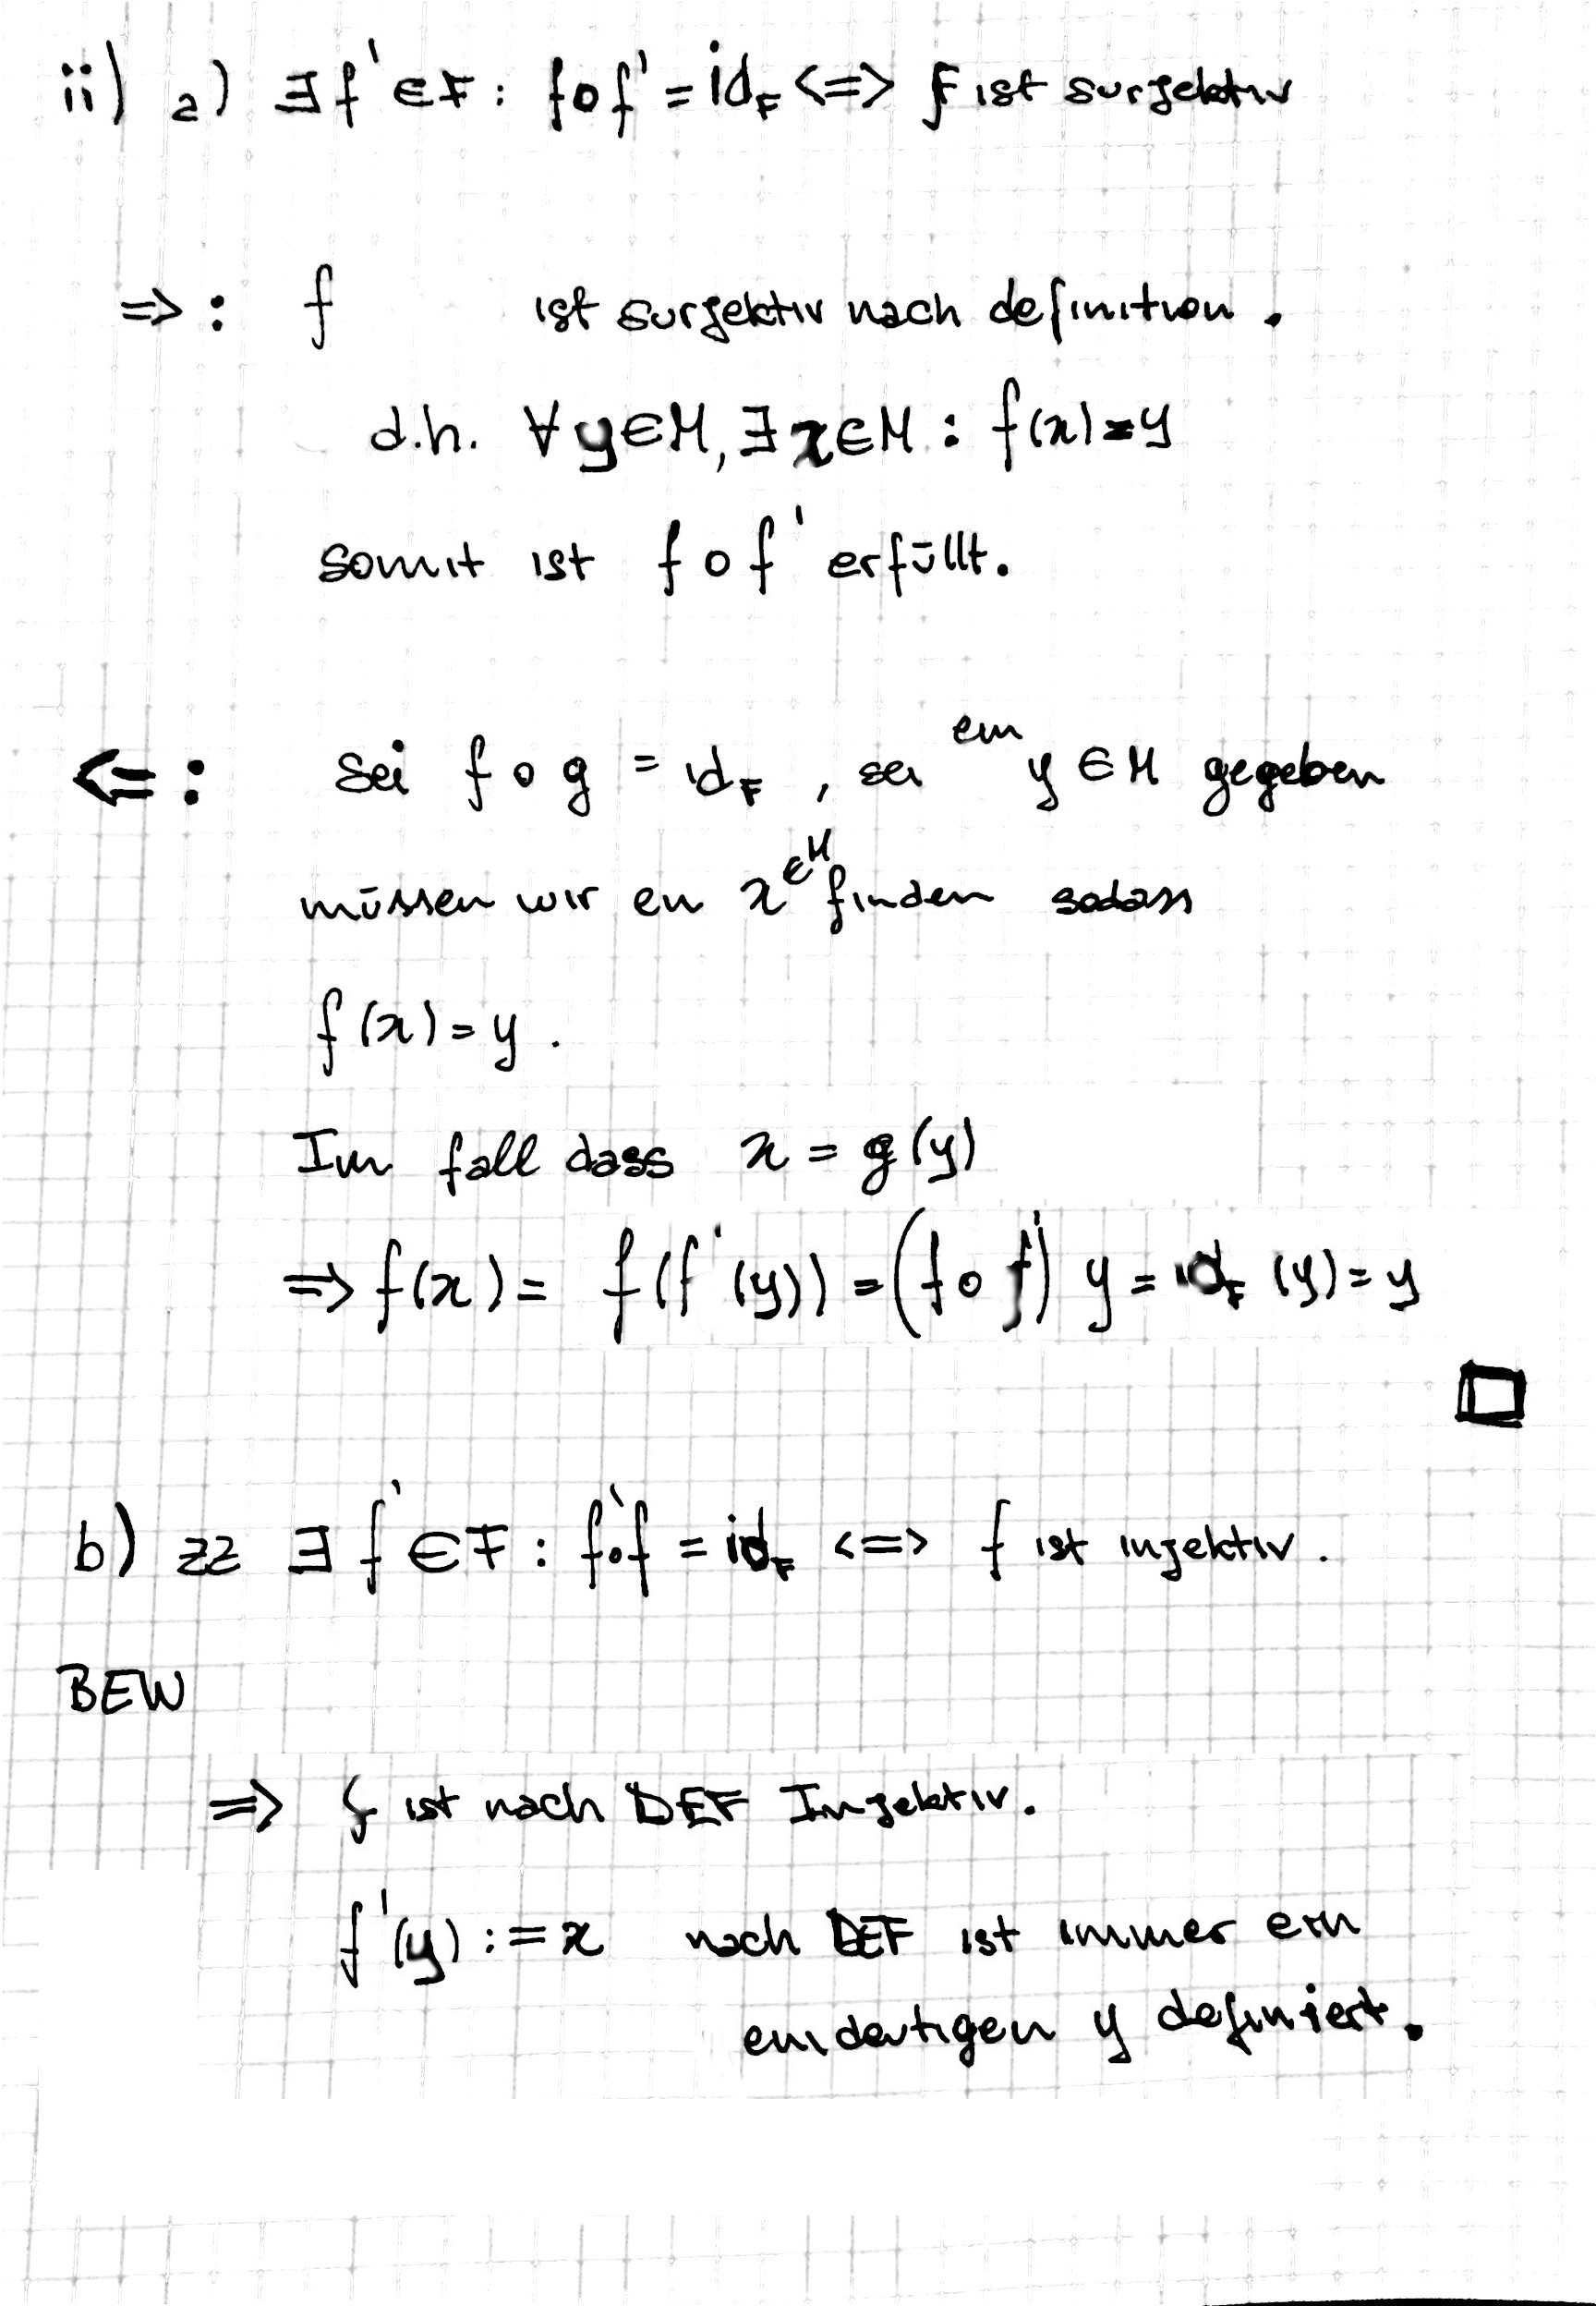 ii) a) ∃ f' ∈ F : f o f' = id_F <=> f ist surjektiv
=> : f ist surjektiv nach definition .
d.h. ∀ y ∈ M, ∃ x ∈ M : f(x) = y
somit ist f o f' erfüllt.
<= : Sei f o g = id_F , sei ein y ∈ M gegeben
müssen wir en x ∈M finden sodass
f(x) = y .
Im fall dass x = g(y)
=> f(x) = f(f'(y)) = (f o f') y = id_F (y) = y
□
b) zz ∃ f' ∈ F : f'of = id_F <=> f ist injektiv .
BEW
=> f ist nach DEF Injektiv.
f'(y) := x nach DEF ist immer ein
eindeutigen y definiert.